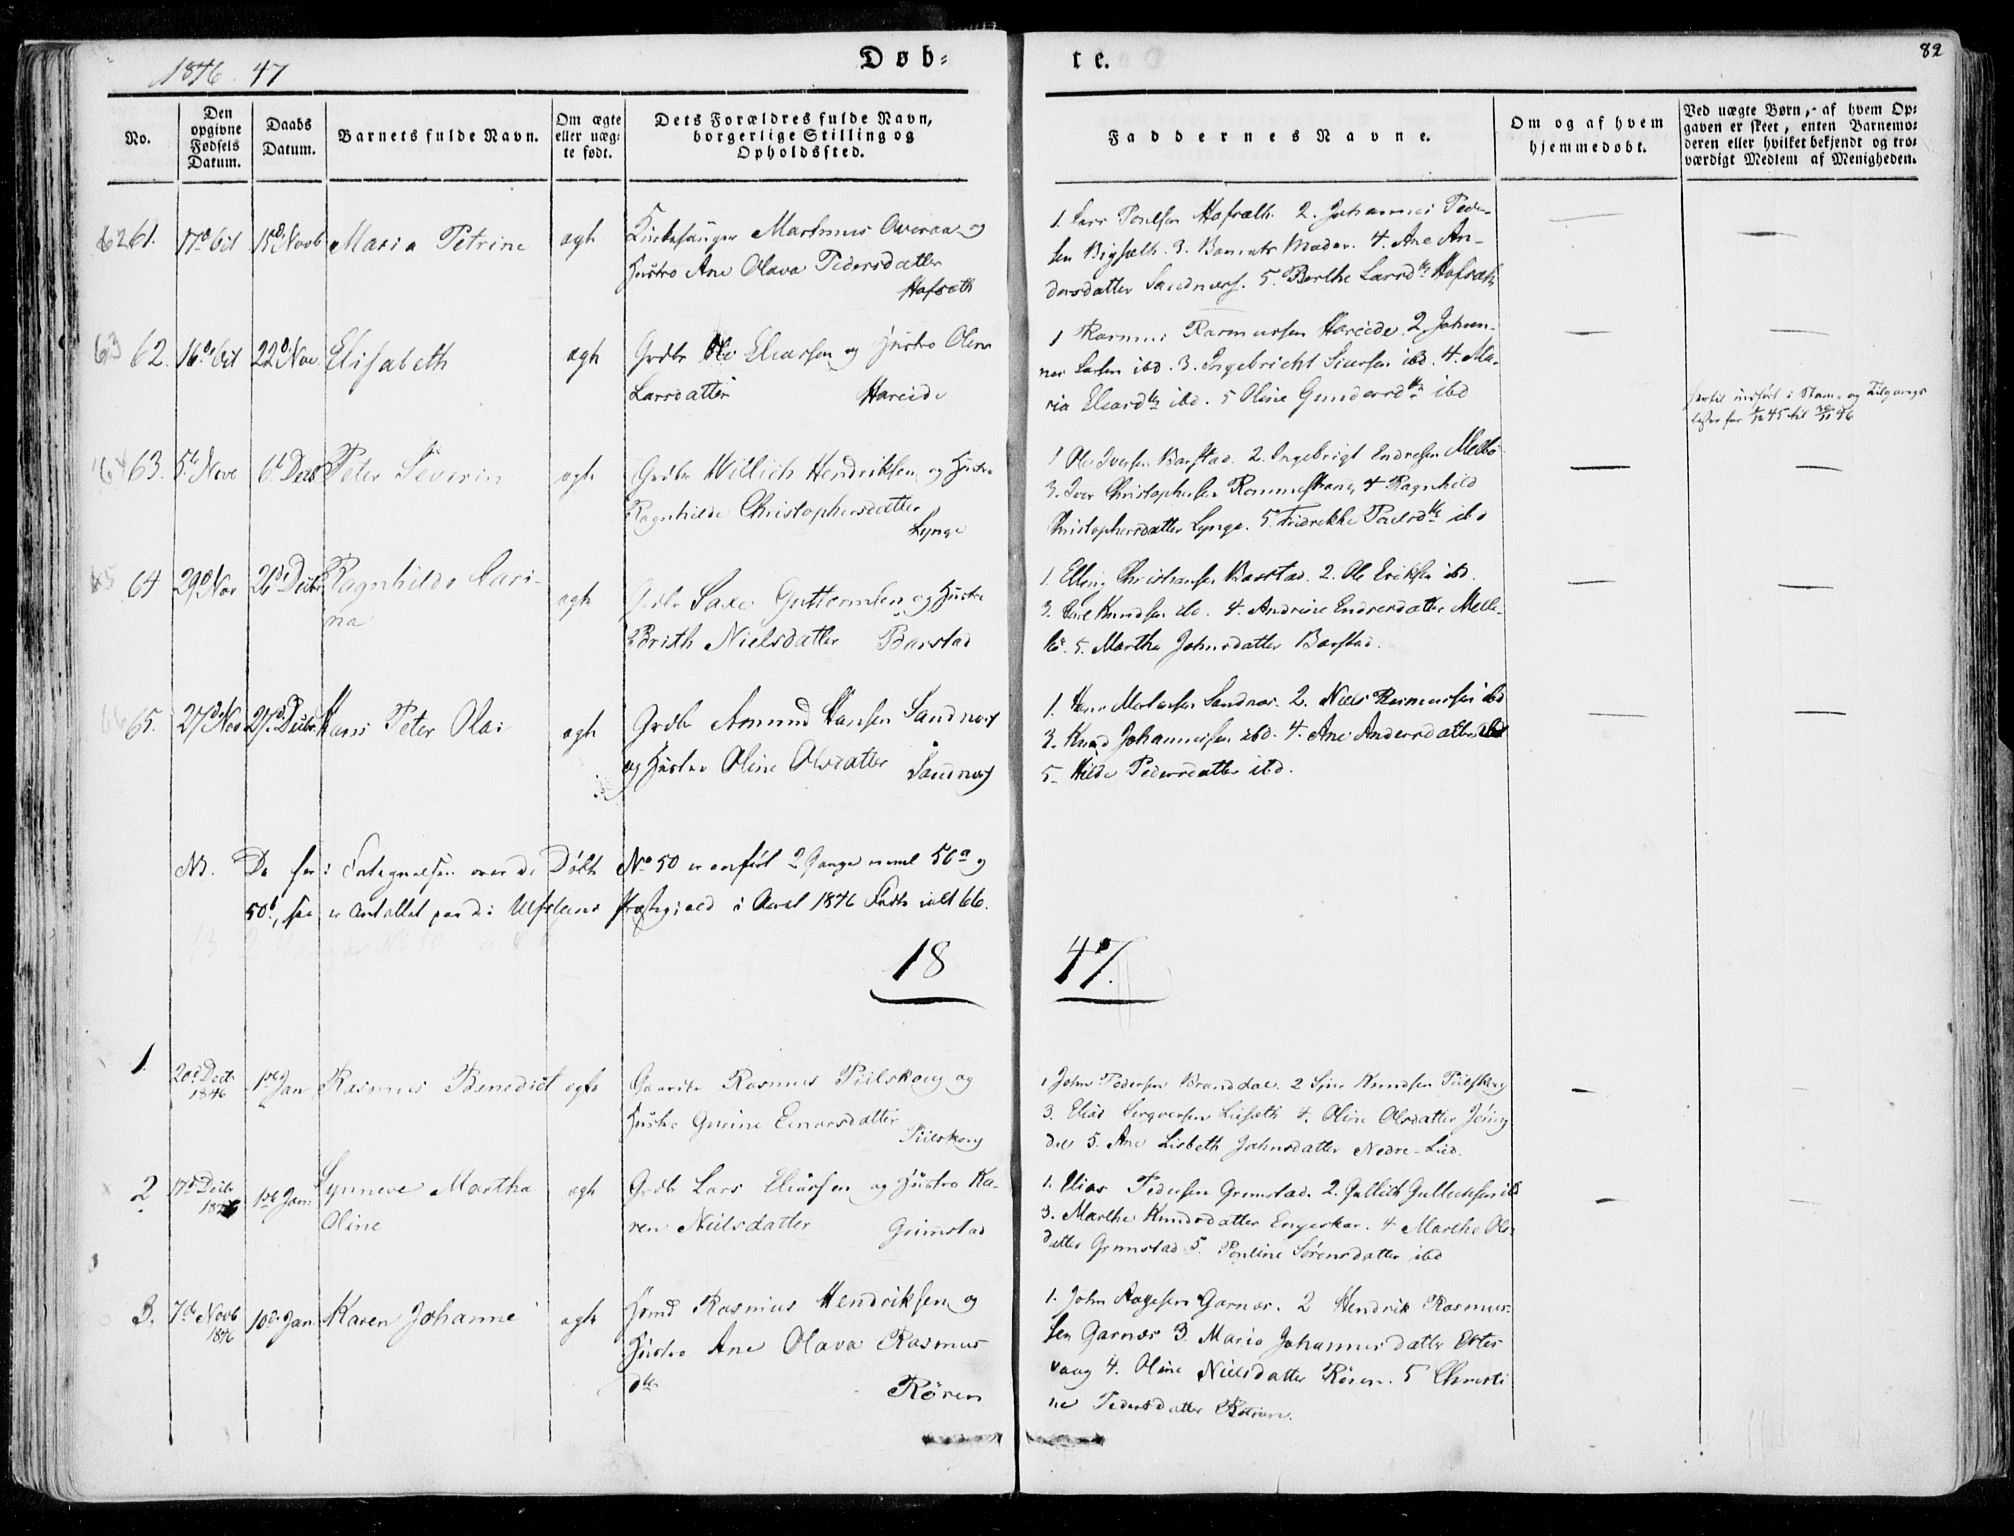 1846. 47
Døb=
te.
82
No.
Den opgivne Fødsels Datum.
Daabs Datum.
Barnets fulde Navn.
Om ægte eller uæg= te født.
Dets Forældres fulde Navn, borgerlige Stilling og Opholdssted.
Faddernes Navne.
Om og af hvem hjemmedøbt.
Ved uægte Børn,- af hvem Op= gaven er skeet, enten Barnemo= deren eller hvilket bekjendt og tro= værdigt Medlem af Menigheden.
62 61. 17d 15d Novb Maria Petrine ægte Kirkesanger Martinus Overaa og
Hustro Ane Olava Pedersdatter
Hofsæth
1. Lars Poulsen Hofsæth. 2. Johannes Peder-
sen Bigsæth. 3. Barnets Moder. 4. Ane An-
dersdatter Sandnæs. 5. Berthe Larsdtr Hofsæth
63 62. 16de 22d Nov. Elisabeth ægte Grdbr Ole Eliassen og Hustro Oline
Larsdatter Hareide
1 Rasmus Rasmussen Hareide. 2. Johan-
nes Larsen ibd. 3. Ingebricht Siursen ibd. 4. Ma-
ria Eliasdtr ibd. 5 Oline Gundersdtr ibd
64 63. 5t Novb 6t Decb Peter Severin ægte Grdbr Willich Hendriksen og Hustro
Ragnhilde Christophersdatter
Lynge
1 Ole Iversen Barstad. 2. Ingebrigt Endresen Melbö
3. Iver Christophersen Rommestrand, 4 Ragnhild
Christophersdatter Lynge. 5. Fredrikke Poulsdtr ibd
65 64 29d Nov 26d Decbr Ragnhilde Cari-
na
ægte Grdbr Saxe Guttormsen og Hustro
Brith Nielsdatter Barstad
1. Elling Christiansen Barstad. 2. Ole Eriksen ibd.
3. Knudsen ibd. 4. Andrine Endresdatter Melle-
bö. 5. Marthe Johnsdatter Barstad.
66 65. 27d Nov 27d Decbr. Hans Peter Olai ægte Grdbr Amund Hansen Sandnæs
og Hustro Oline Olsdatter Sandnæs
1. Hans Sandnæs. 2. Niels Rasmussen ibd
3. Knud Johannessen ibd. 4. Ane Andersdatter ibd
5. Hilde Pedersdatter ibd.
NB. Da her i Fortegnelsen over de Döbte No 50 er anfört 2 Gange neml 50a og
50b, saa er Antallet paa de i Ulfsteens Præstegjeld i Aaret 1846 födte ialt 66.
18 47.
1. 20d Decb 1846 1ste Jan Rasmus Benedict ægte Gaardbr Rasmus Piilskoug og
Hustro Gurine Einarsdatter
Piilskoug
1 John Pedersen Branddal. 2 Siur Knudsen Piilskoug
3. Elias Sivertsen Liesæth 4. Oline Olsdatter
dal 5. Ane Lisbeth Johnsdatter Nedre-Lied.
2 17d Decbr 1846 1ste Jan. Synneve Martha
Oline
ægte Grdbr Lars Eliassen og Hustro Ka-
ren Nielsdatter Grimstad
1. Elias Pedersen Grimstad. 2. Gullik Gulliksen ibd
3. Marthe Knudsdatter Engeskar. 4 Marthe Ols-
datter Grimstad 5. Pouline Sörensdatter ibd
3. 7de Novb 1846 10d. Jan Karen Johanne ægte Huusmd Rasmus Hendriksen og
Hustro Ane Olava Rasmus
dtr Rören
1. John Aagesen Garnæs. 2 Hendrik Rasmus-
sen Garnæs 3. Maria Johannesdatter Eltes
vaag 4. Oline Nielsdatter Rören. 5 Christi
ne Pedersdatter